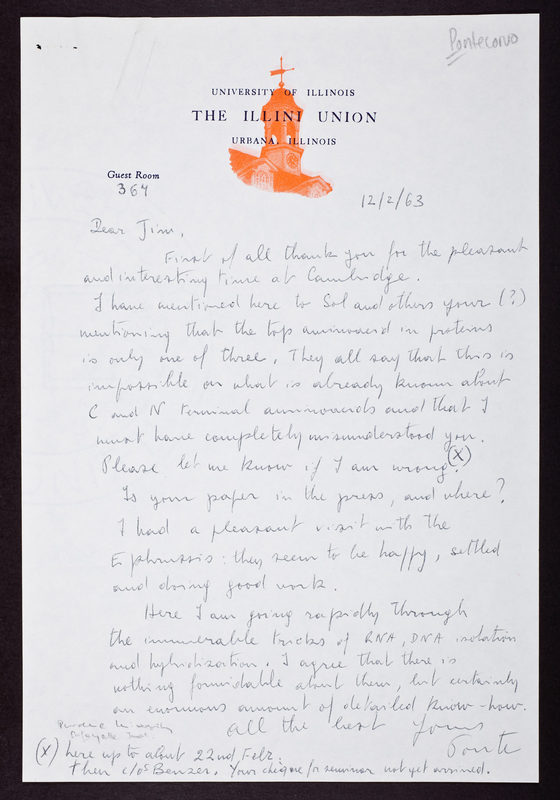 Pontecorvo
UNIVERSITY OF ILLINOIS
THE ILLINI UNION
URBANA, ILLINOIS
Guest Room
364
12/2/63
Dear Jim,
First of all thank you for the pleasant
and interesting time at Cambridge.
I have mentioned here to Sol and others your (?)
mentioning that the top aminoacid in proteins
is only one of three. They all say that this is
impossible on what is already known about
C and N terminal aminoacids and that I
must have completely misunderstood you.
Please let me know if I am wrong. (X)
Is your paper in the press, and where?
I had a pleasant visit with the
Ephrussis: they seem to be happy, settled
and doing good work.
Here I am going rapidly through
the innumerable tricks of RNA, DNA isolation
and hybridization. I agree that there is
nothing formidable about them, but certainly
an enormous amount of detailed know-how.
all the best yours
Ponte
Purdue University
Lafayette Ind.
(X) here up to about 22nd Febr.
Then c/o Benzer. Your cheque for seminar not yet arrived.